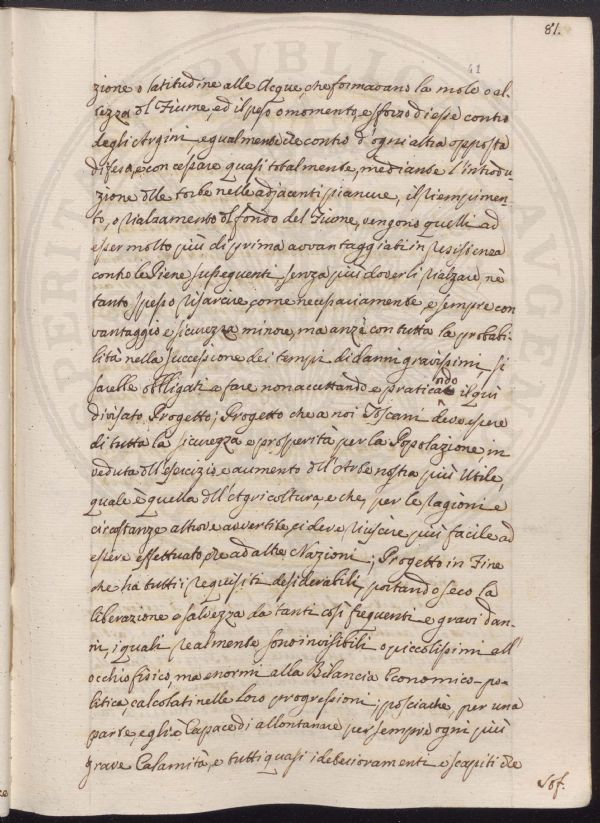 81.
41
zione o latitudine alle Acque, che formavano la mole o al-
tezza del Fiume, ed il peso o momento, e sforzo di esse contro
degli Argini egualmente che contro d'ogni altra opposta
difesa, e con cessare quasi totalmente, mediante l'introdu-
zione delle torbe nelle adjacenti pianure, il riempimen-
to, o rialzamento del fondo del Fiume, vengono quelli ad
esser molto più di prima avvantaggiati in resistenza
contro le Piene susseguenti, senza più doverli rialzare nè
tanto spesso risarcire, come necessariamente e sempre con
vantaggio e sicurezza minore, ma anzi con tutta la probabi-
lità nella successione dei tempi di danni gravissimi si
sarebbe obbligati a fare non accettando e praticando il qui
divisato Progetto; Progetto che a noi Toscani deve essere
di tutta la sicurezza e prosperità per la Popolazione in
veduta dell'esercizio e aumento dell'Arte nostra più Utile,
quale è quella dell'Agricoltura, e che, per le ragioni e
circostanze altrove avvertite, ci deve riuscire più facile ad
essere effettuato, che ad altre Nazioni; Progetto in Fine
che ha tutti i requisiti desiderabili, portando seco la
liberazione e salvezza da tanti così frequenti e gravi dan-
ni, i quali realmente sono invisibili o piccolissimi all'
occhio fisico, ma enormi alla Bilancia Economico-po-
litica, calcolati nelle loro progressioni; posciachè, per una
parte, egli è Capace di allontanare per sempre ogni più
grave Calamità, e tutti quasi i deterioramenti e scapiti che
sof.